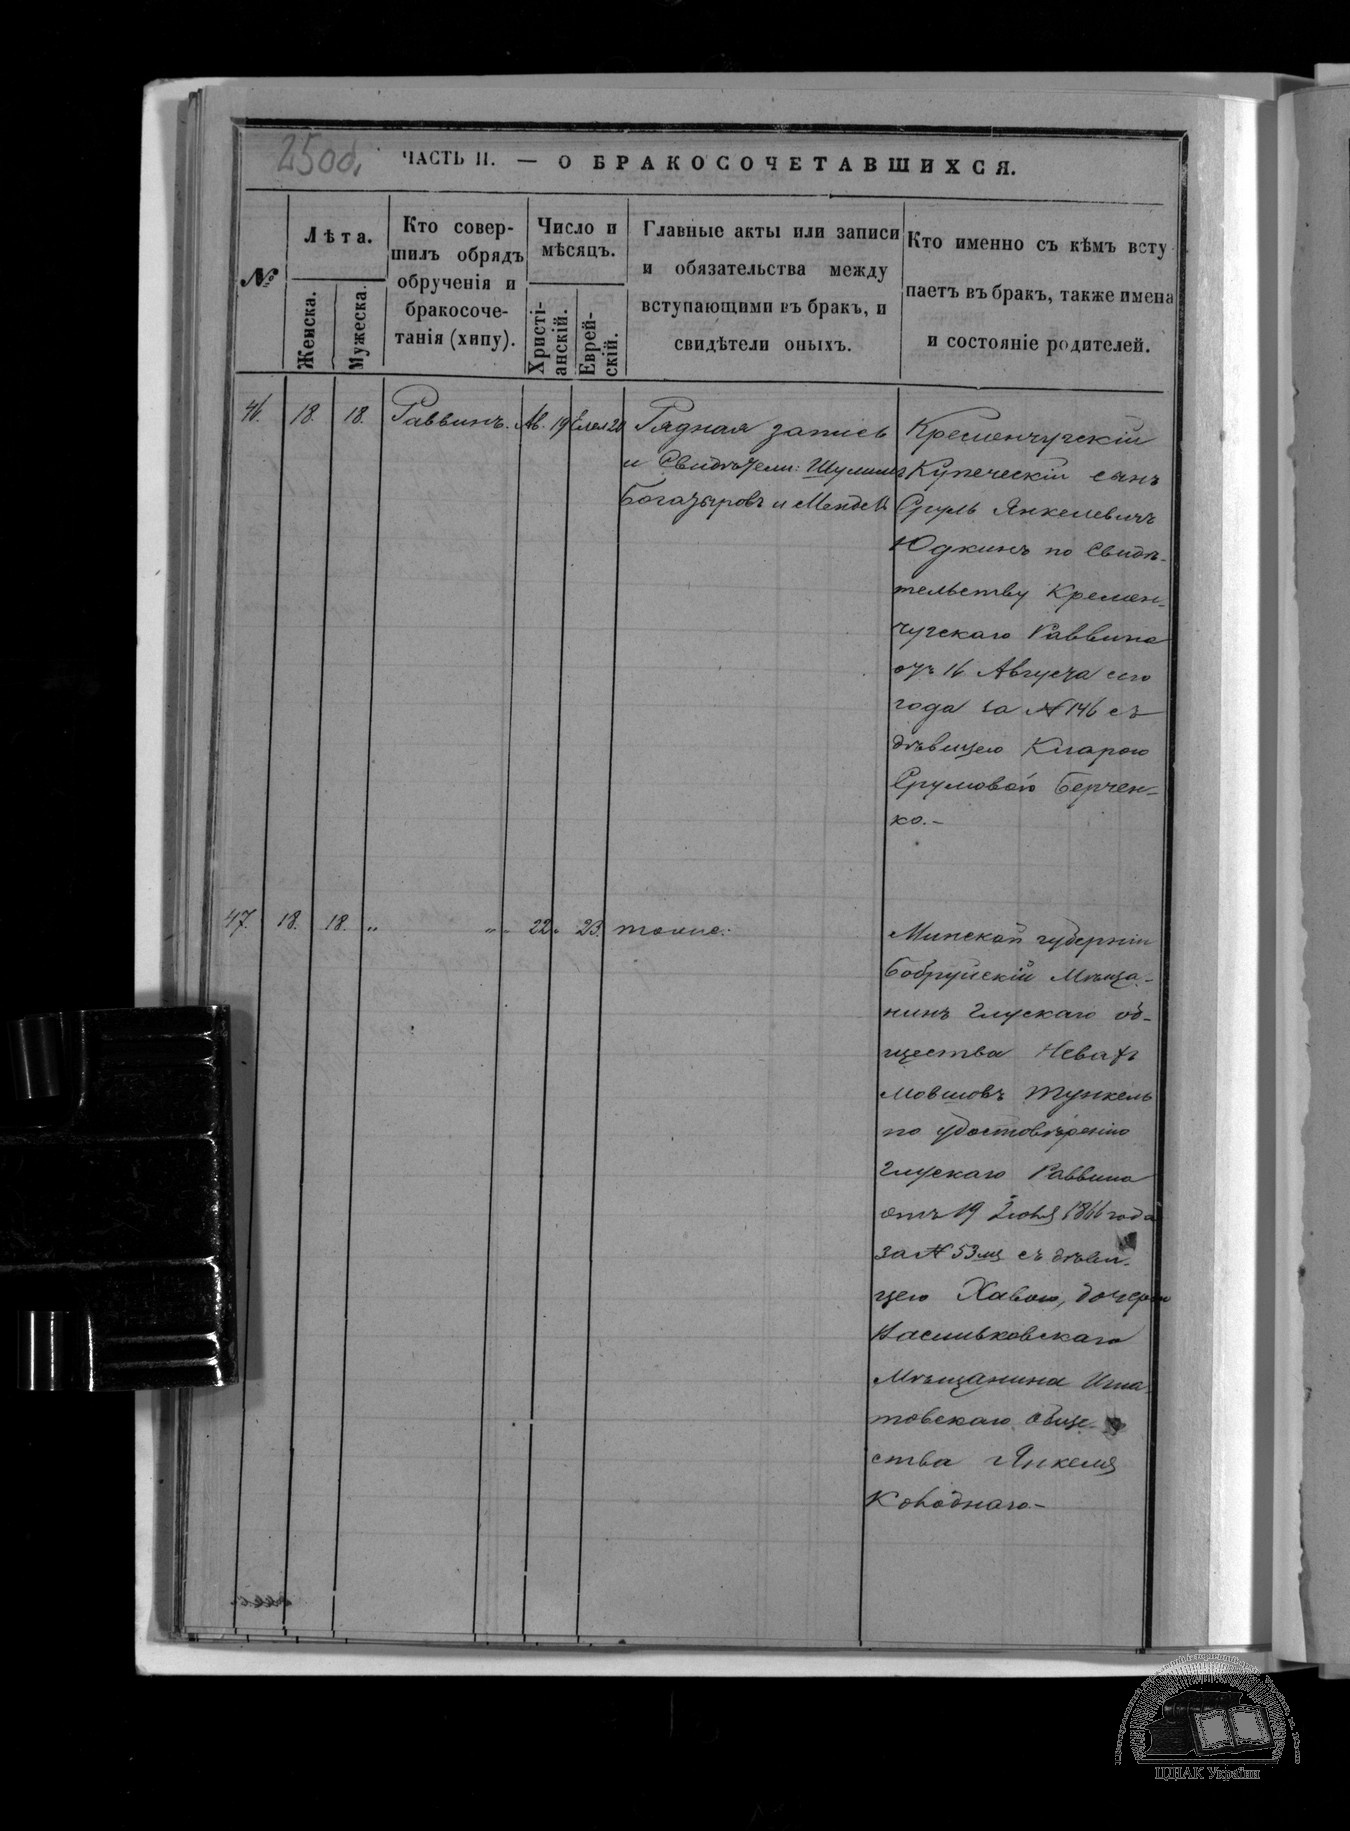 250об.
ЧАСТЬ II. — О БРАКОСОЧЕТАВШИХСЯ.
№
Лѣта.
Женска.
Мужеска.
Кто совер-
шилъ обрядъ
обрученія и
бракосоче-
танія (хипу).
Число и
мѣсяцъ.
Христі-
анскій.
Еврей-
скій.
Главные акты или записи
и обязательства между
вступающими въ бракъ, и
свидѣтели оныхъ.
Кто именно съ кѣмъ всту
паетъ въ бракъ, также имена
и состояніе родителей.
46. 18. 18. Раввинъ. Ав. 19 Елел 20
Рядная запись
и Свидѣтели: Шулимъ
Богатыровъ и Мендель
Кременчугскій
Купеческій сынъ
Сруль Янкелевичъ
Юдкинъ по Свидѣ-
тельству Кремен-
чугскаго Раввина
отъ 16 Августа сего
года за № 146 съ
дѣвицею Кларою
Срумовою Берчен-
ко.-
47. 18. 18. " " 22. 23. тоже.
Минской губерніи
Бобруйскій Мѣща-
нинъ Глускаго об-
щества
Мовшовъ Тункель
по удостовѣренію
Глускаго Раввина
отъ 19 1866 года
за № 53 съ дѣви-
цею Хавою, дочерью
Васильковскаго
Мѣщанина Игна-
товскаго Обще-
ства Янкеля
Колоднаго.-
ЦДІАК України